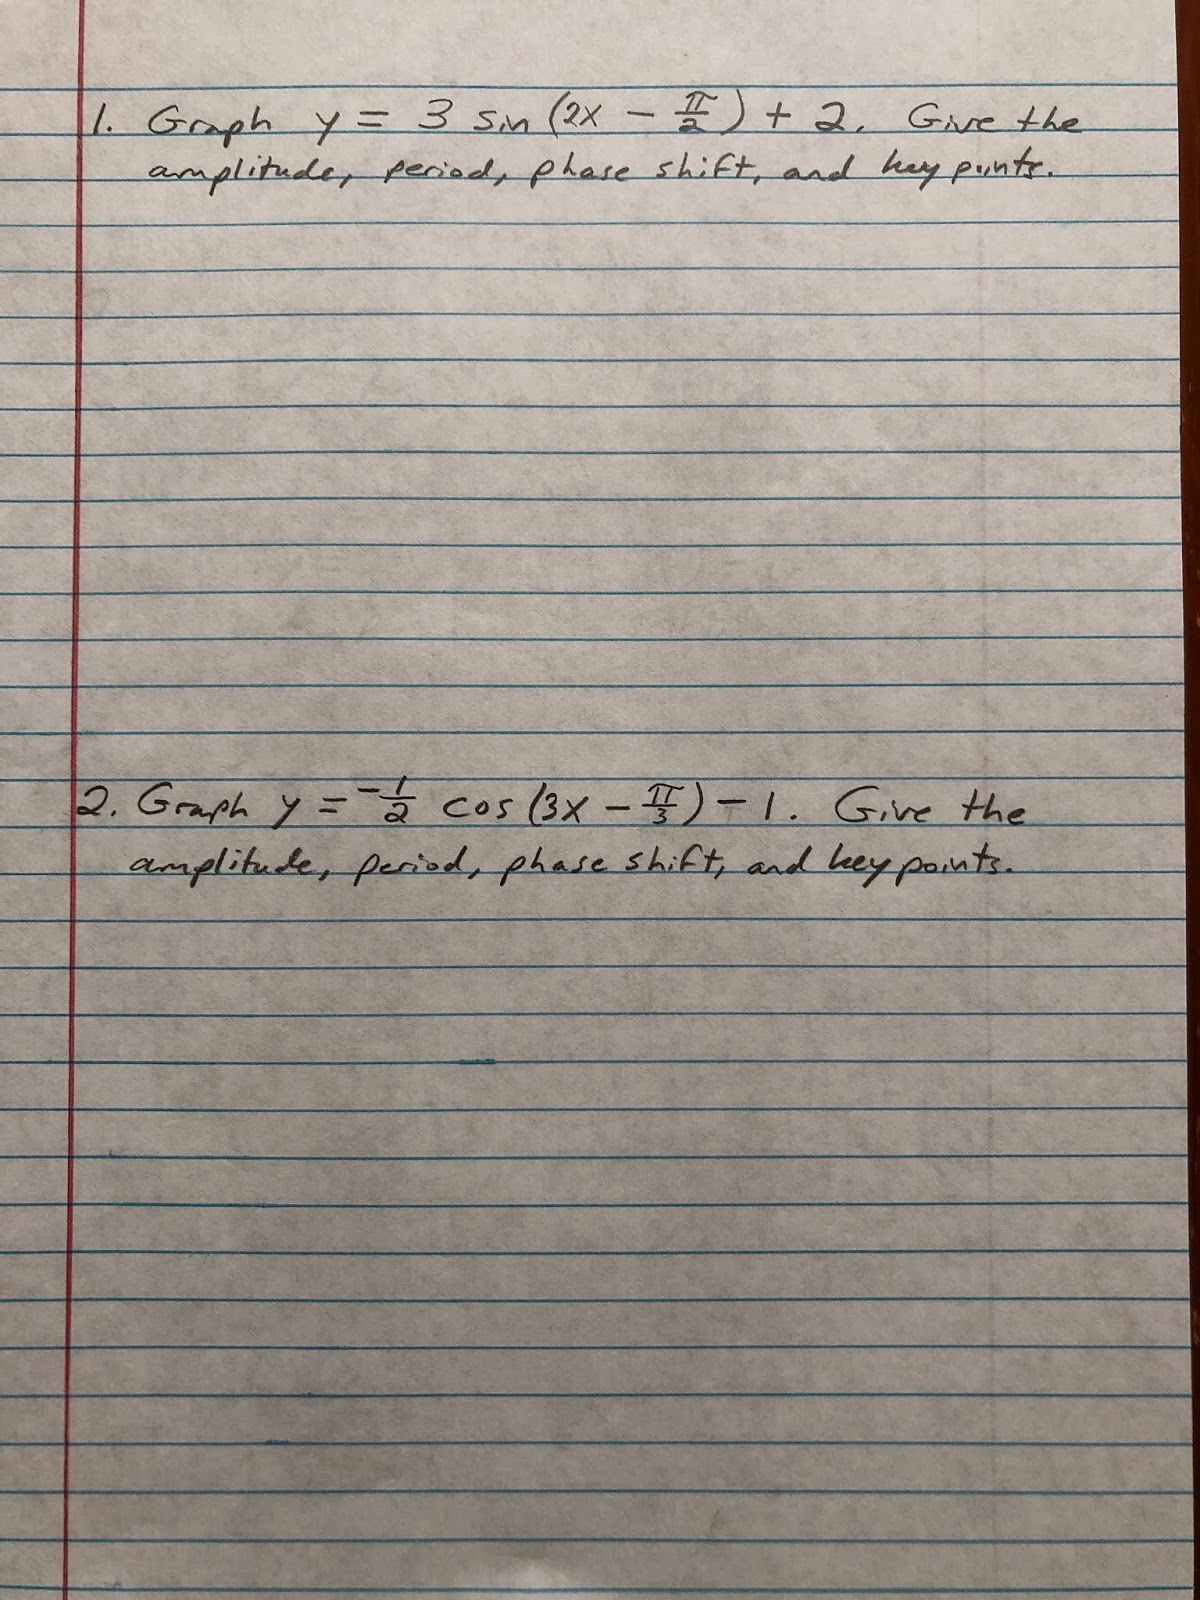 1. Graph y = 3 sin (2x - π/2) + 2. Give the
amplitude, period, phase shift, and key points.
2. Graph y = -1/2 cos (3x - π/3) - 1. Give the
amplitude, period, phase shift, and key points.